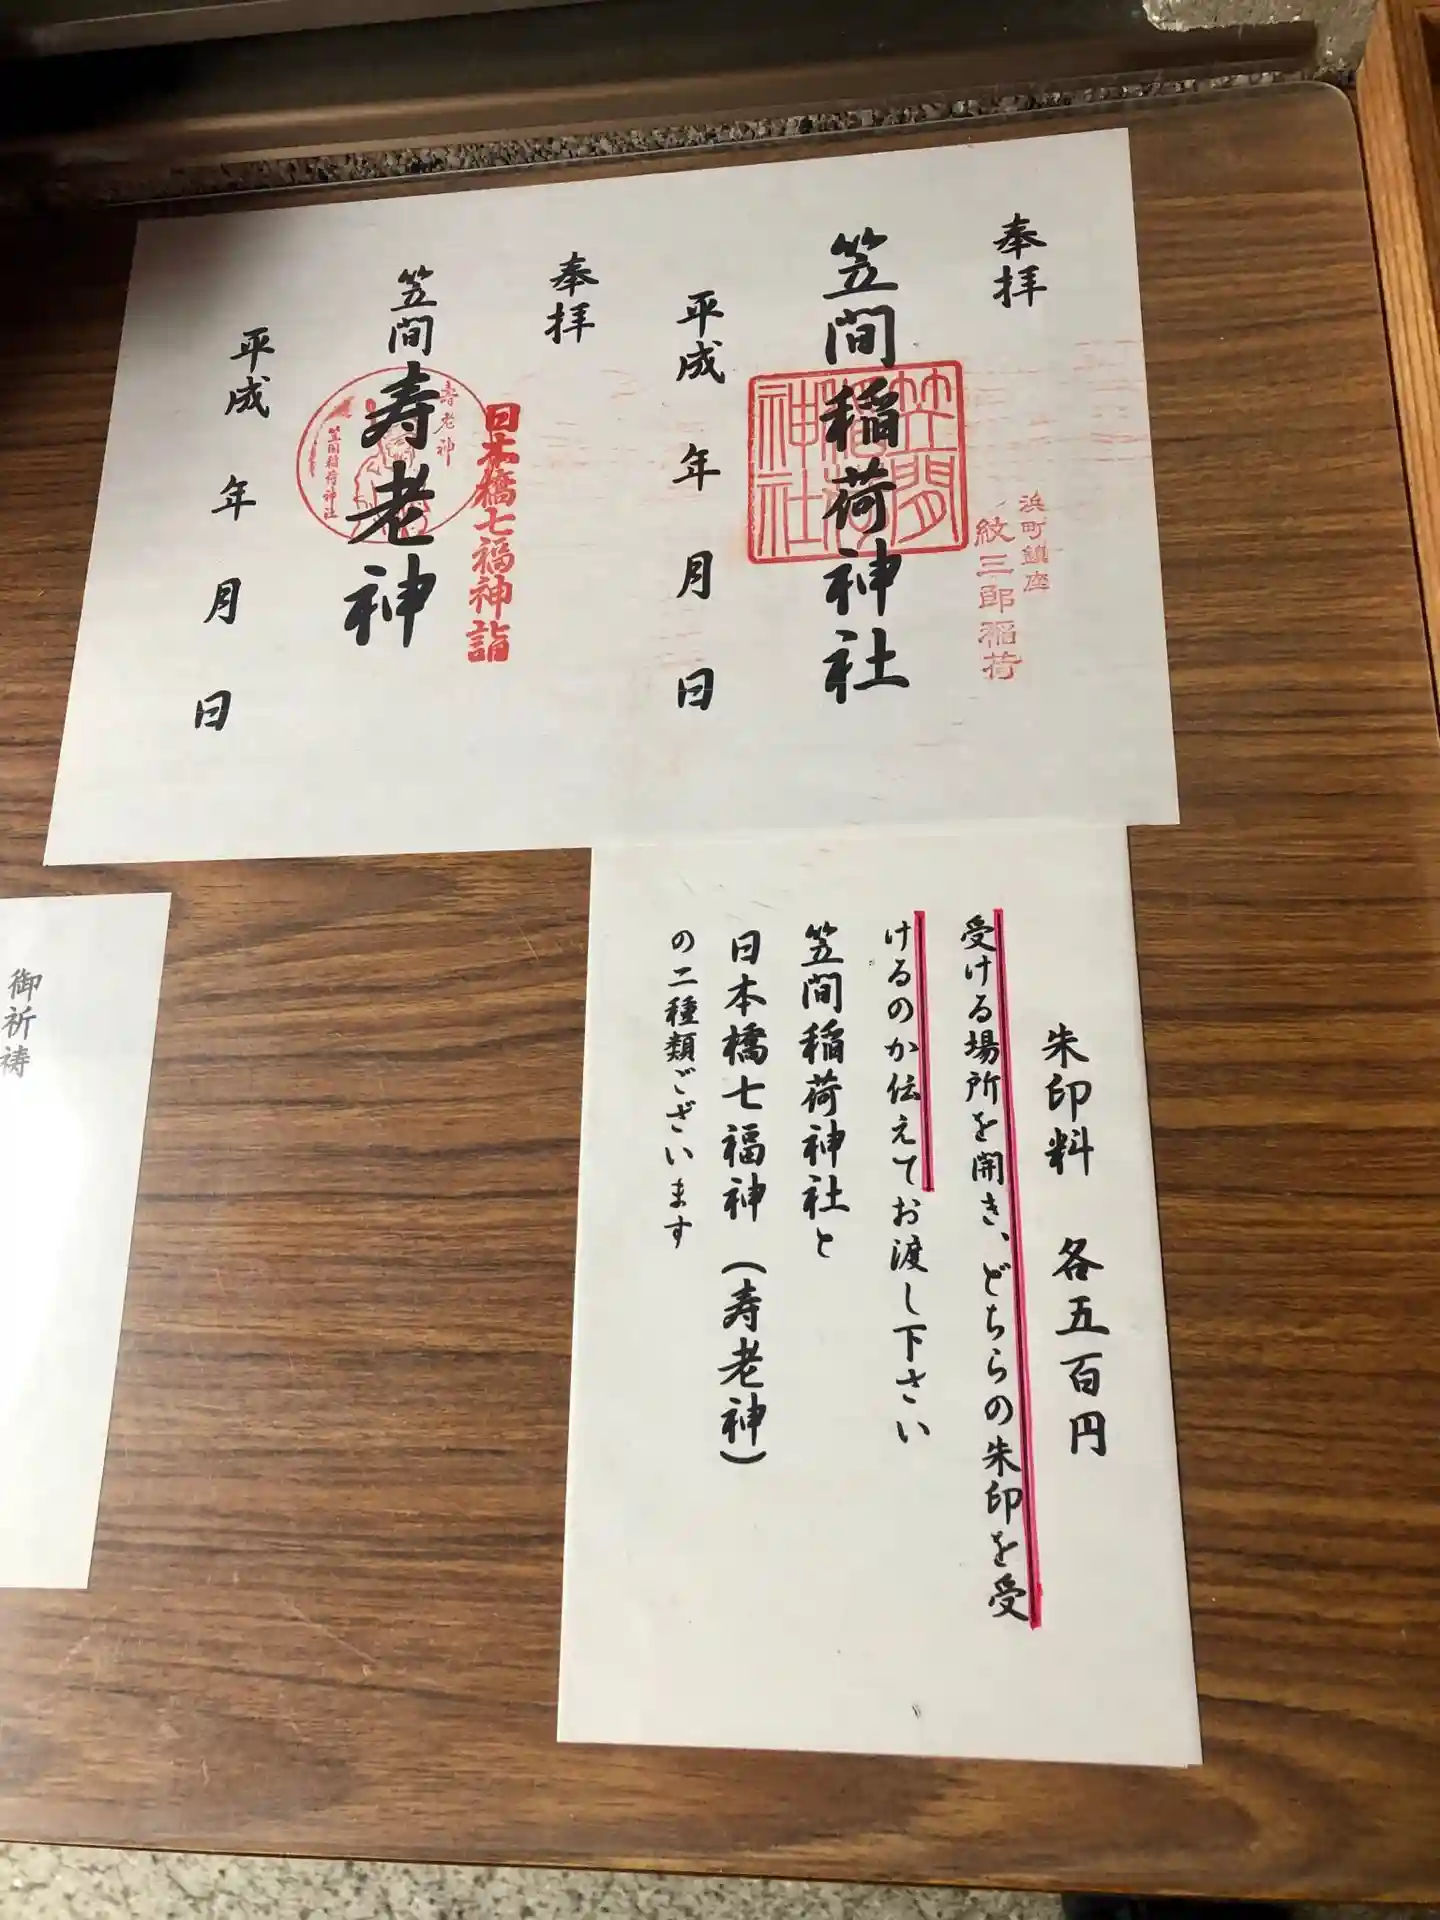 奉拝
笠間稲荷神社
笠間稲荷神社
浜町鎮座
紋三郎稲荷
平成 年 月 日
奉拝
日本橋七福神詣
笠間寿老神
寿老神
笠間稲荷神社
平成 年 月 日
朱印料 各五百円
受ける場所を開き、どちらの朱印を受
けるのか伝えてお渡し下さい
笠間稲荷神社と
日本橋七福神(寿老神)
の二種類ございます
御祈祷